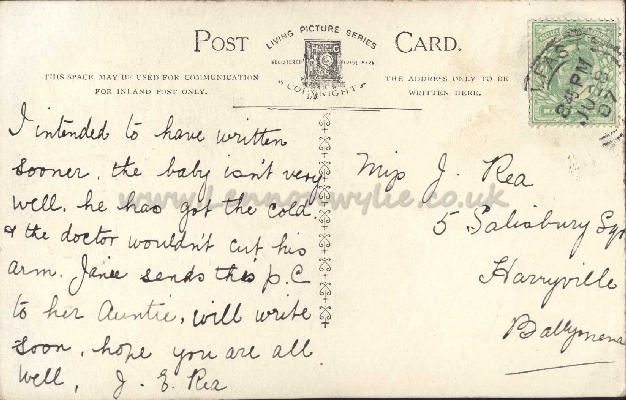 POST CARD.
LIVING PICTURE SERIES
REGISTERED
COPYRIGHT
THIS SPACE MAY BE USED FOR COMMUNICATION
FOR INLAND POST ONLY.
THE ADDRESS ONLY TO BE
WRITTEN HERE.
8 45 PM
07
I intended to have written
sooner, the baby isn't very
well, he has got the cold
& the doctor wouldn't cut his
arm. Janie sends this p.c
to her Auntie, will write
soon, hope you are all
well, J. E. Rea
Miss J. Rea
5 Salisbury Sqr
Harryville
Ballymena
www.Lennonwylie.co.uk